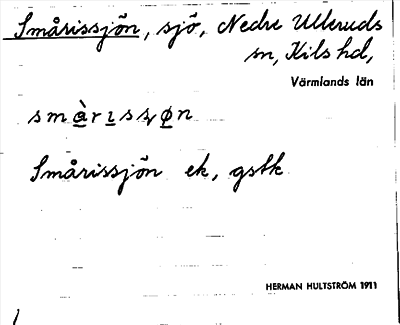 Smårissjön, sjö, Nedre Ulleruds
sn, Kils hd,
Värmlands län
smàrıssøn
Smårissjön ek, gstk
HERMAN HULTSTRÖM 1911